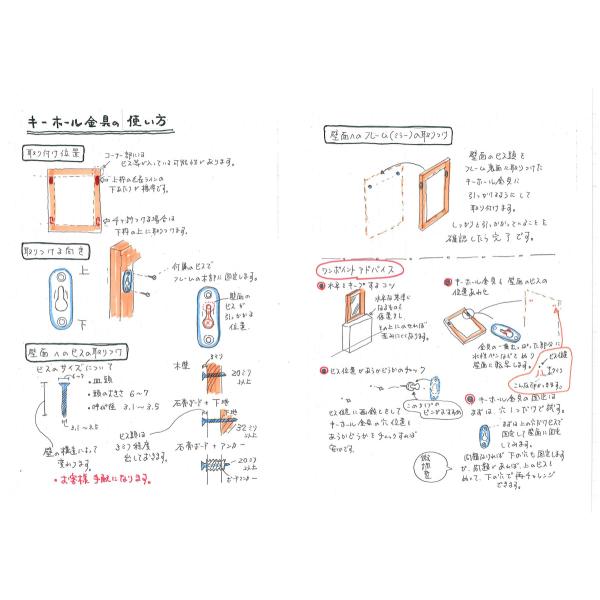 キーホール金具の使い方
取り付け位置
コーナー部には
ビス等が入っている可能性があります。
上枠の左右ラインの
下あたりが標準です。
サオ釣りする場合は
下枠の上に取りつけます。
取りつける向き
上
下
付属のビスで
フレームの木部に固定します。
壁面の
ビスが
引っかかる
位置。
壁面へのビスの取りつけ
ビスのサイズについて
6~7
・皿頭
・頭の太さ 6~7
・呼び径 3.1~3.5
3.1~3.5
壁の構造によって
変わります。
・お客様手配になります。
ビス頭は
3ミリ程度
出しておきます。
木壁
3ミリ
20ミリ
以上
石膏ボード+下地
下地
32ミリ
以上
石膏ボード+アンカー
20ミリ
以上
ボードアンカー
壁面へのフレーム(ミラー)の取りつけ
壁面のビス頭を
フレーム裏面に取りつけた
キーホール金具に
引っかけるようにして
取り付けます。
しっかりと引っかかっていることを
確認したら完了です。
ワンポイントアドバイス
水平をキープするコツ
水平な基準に
なるものを
仮置きし
その上にのせれば
歪みにくくなります。
キーホール金具と壁面のビスの
位置あわせ
金具の一番出っぱった部分に
水性ペンなどをぬり
壁面に転写します。
ビス位置
こんな印がつきます。
ビス位置があうかどうかのチェック
このタイプの
ピンがおすすめ
ビス位置に画鋲をさして
キーホール金具の穴位置と
あうかどうかをチェックすれば
安心です。
キーホール金具の固定は
まずは穴1つだけで試す。
まずは上の穴だけビスで
固定して壁面に固定
してみます。
問題なければ下の穴も固定します
が、問題があれば、上のビスを
ぬいて、下の穴で再チャレンジ
できます。
微調整